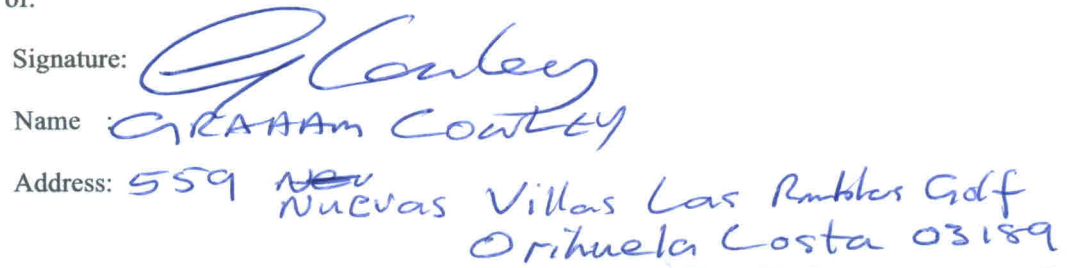 of:
Signature: G Cowley
Name : GRAHAM COWLEY
Address: 559 Nuevas Villas Las Ramblas Golf
Orihuela Costa 03189